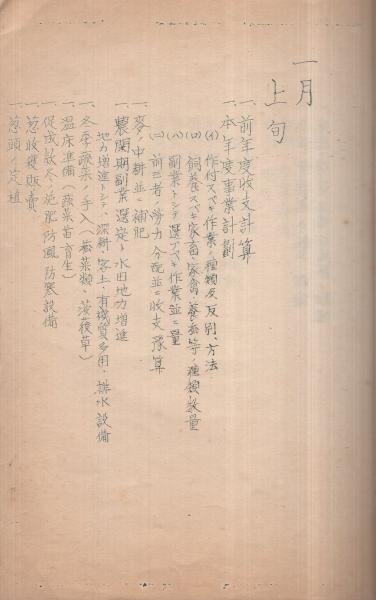 一月
上旬
一、前年度收支計算
一、本年度事業計劃
(イ) 作付スベキ作業ノ種類及反別、方法
(ロ) 飼養スベキ家畜、家禽、養蚕等ノ種類数量
(ハ) 副業トシテ選ブベキ作業並ニ量
(ニ) 前三者ノ労力分配並ニ收支豫算
一、麥ノ中耕並ニ補肥
一、農閑期副業選定ト水田地力増進
地力増進トシテハ深耕、客土、有機質多用、排水設備
一、冬季蔬菜ノ手入(葉菜類、菠薐草)
一、温床準備(蔬菜苗育生)
一、促成蔬菜ノ施肥防風防寒設備
一、葱收穫販賣
一、葱頭ノ定植